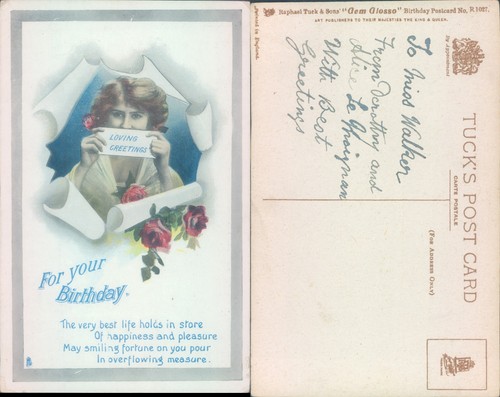 LOVING
GREETINGS
For your
Birthday.
The very best life holds in store
Of happiness and pleasure
May smiling fortune on you pour
In overflowing measure.
Raphael Tuck & Sons' "Gem Glosso" Birthday Postcard No, R 1087.
ART PUBLISHERS TO THEIR MAJESTIES THE KING & QUEEN.
Printed in England.
To Miss Walker
From Dorothy and
Alice Le Moignan
With Best
Greetings
By Appointment
TUCK'S POST CARD
CARTE POSTALE
(FOR ADDRESS ONLY)